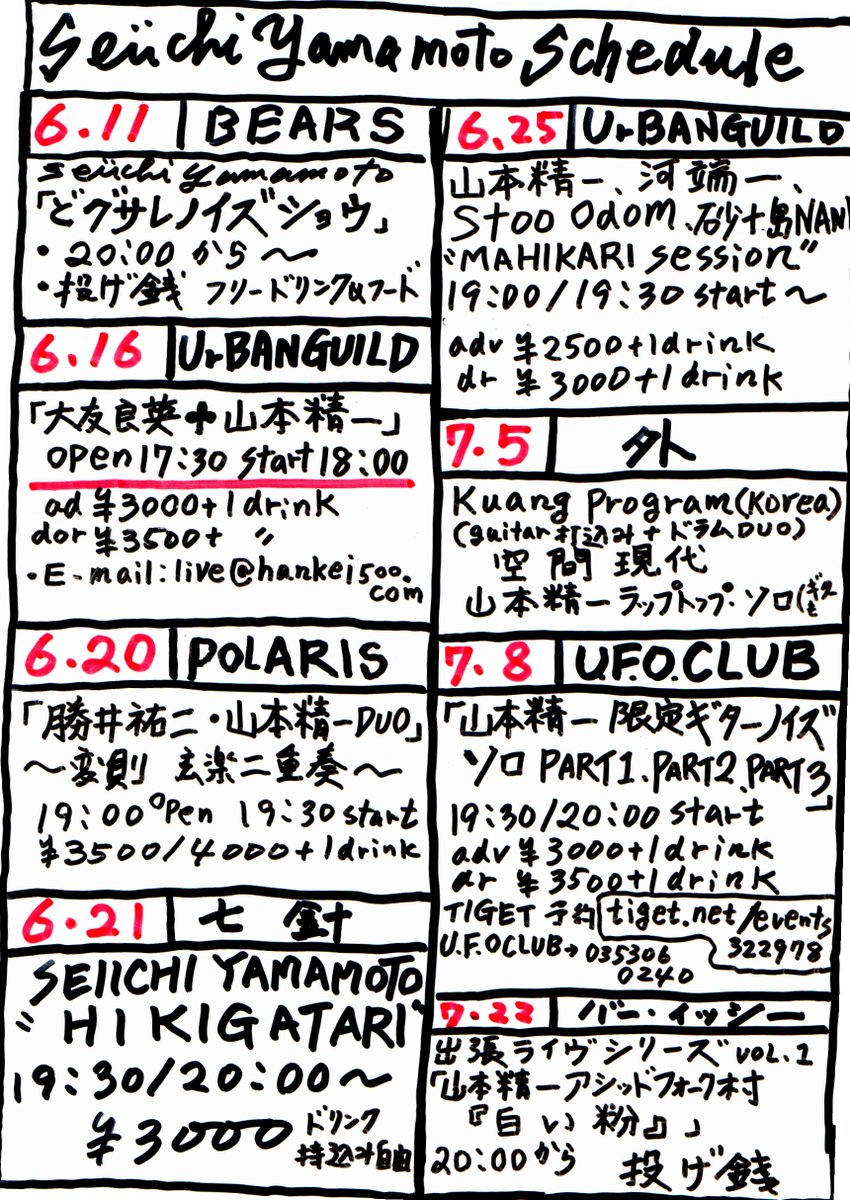 Seiichi Yamamoto Schedule
6.11 BEARS
seiichi yamamoto
「どグサレノイズショウ」
・20:00 から〜
・投げ銭 フリードリンク&フード
6.16 UrBANGUILD
「大友良英+山本精一」
open 17:30 start 18:00
ad ¥3000+1drink
dor ¥3500+ 〃
・E-mail:live@hankei500.
com
6.20 POLARIS
「勝井祐二・山本精一DUO」
〜変則 弦楽二重奏〜
19:00 open 19:30 start
¥3500/4000+1drink
6.21 七針
SEIICHI YAMAMOTO
"HIKIGATARI"
19:30/20:00〜
¥3000 ドリンク
持込み自由
6.25 UrBANGUILD
山本精一、河端一、
Stoo Odom、砂十島NANI
"MAHIKARI session"
19:00/19:30 start〜
adv ¥2500+1drink
dr ¥3000+1drink
7.5 外
Kuang Program(Korea)
(guitar打込み+ドラムDUO)
空間現代
山本精一ラップトップ・ソロ(ギターも
7.8 U.F.O.CLUB
「山本精一 限定ギターノイズ
ソロ PART1.PART2.PART3」
19:30/20:00 start
adv ¥3000+1drink
dr ¥3500+1drink
TIGET 予約 tiget.net/events
322978
U.F.OCLUB→035306
0240
7.22 バー・イッシー
出張ライヴシリーズ vol.1
「山本精一アシッドフォーク村
『白い粉』」
20:00から 投げ銭